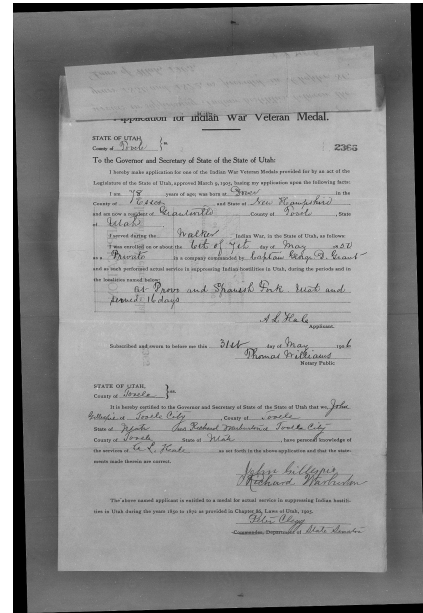 Application for Indian War Veteran Medal.
STATE OF UTAH,
County of Tooele } ss
2365
To the Governor and Secretary of State of the State of Utah:
I hereby make application for one of the Indian War Veteran Medals provided for by an act of the
Legislature of the State of Utah, approved March 9, 1905, basing my application upon the following facts:
I am 78 years of age; was born at Dover in the
County of and State of New Hampshire
and am now a resident of Grantsville County of Tooele, State
of Utah
I served during the Walker Indian War, in the State of Utah, as follows:
I was enrolled on or about the 6th of 7th day of May
as a Private in a company commanded by Captain George D. Grant
and as such performed actual service in suppressing Indian hostilities in Utah, during the periods and in
the localities named below:
at Provo and Spanish Fork Utah and
served 16 days
Applicant.
Subscribed and sworn to before me this 31st day of May 1906
Thomas Williams
Notary Public
STATE OF UTAH,
County of Tooele } ss
It is hereby certified to the Governor and Secretary of State of the State of Utah that we John
Gillespie of Tooele City, County of Tooele
State of Utah and Richard Warburton of Tooele City
County of Tooele State of Utah, have personal knowledge of
the services of as set forth in the above application and that the state-
ments made therein are correct.
John Gillespie
Richard Warburton
The above named applicant is entitled to a medal for actual service in suppressing Indian hostili-
ties in Utah during the years 1850 to 1872 as provided in Chapter Laws of Utah, 1905.
Commander, Department of State Senator